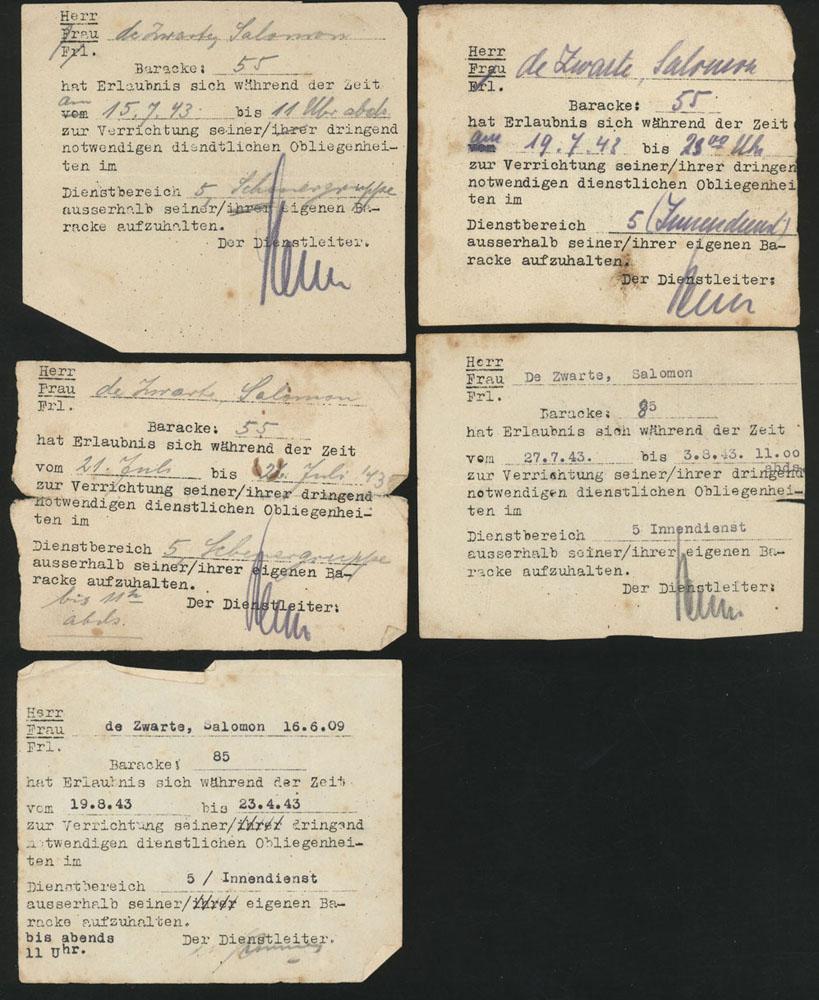 Herr
Frau de Zwarte, Salomon
Frl.
Baracke: 55
hat Erlaubnis sich während der Zeit
am
vom 15.7.43 bis 11 Uhr abds
zur Verrichtung seiner/ihrer dringend
notwendigen diendtlichen Obliegenhei-
ten im
Dienstbereich 5,
ausserhalb seiner/ihrer eigenen Ba-
racke aufzuhalten.
Der Dienstleiter.
Herr
Frau de Zwarte, Salomon
Frl.
Baracke: 55
hat Erlaubnis sich während der Zeit
am
vom 19.7.43 bis 23⁰⁰ Uhr
zur Verrichtung seiner/ihrer dringen
notwendigen dienstlichen Obliegenhei
ten im
Dienstbereich 5 (Innendienst)
ausserhalb seiner/ihrer eigenen Ba-
racke aufzuhalten.
Der Dienstleiter:
Herr
Frau de Zwarte, Salomon
Frl.
Baracke: 55
hat Erlaubnis sich während der Zeit
vom 21. Juli bis Juli '43
zur Verrichtung seiner/ihrer dringend
notwendigen dienstlichen Obliegenhei-
ten im
Dienstbereich 5,
ausserhalb seiner/ihrer eigenen Ba-
racke aufzuhalten.
bis 11 h Der Dienstleiter:
abds.
Herr
Frau De Zwarte, Salomon
Frl.
Baracke: 85
hat Erlaubnis sich während der Zeit
vom 27.7.43. bis 3.8.43. 11.00
abds
zur Verrichtung seiner/ihrer dringend
notwendigen dienstlichen Obliegenhei-
ten im
Dienstbereich 5 Innendienst
ausserhalb seiner/ihrer eigenen Ba-
racke aufzuhalten.
Der Dienstleiter:
Herr
Frau de Zwarte, Salomon 16.6.09
Frl.
Baracke: 85
hat Erlaubnis sich während der Zeit
vom 19.8.43 bis 23.4.43
zur Verrichtung seiner/ihrer dringend
notwendigen dienstlichen Obliegenhei-
ten im
Dienstbereich 5 / Innendienst
ausserhalb seiner/ihrer eigenen Ba-
racke aufzuhalten.
bis abends Der Dienstleiter.
11 Uhr.